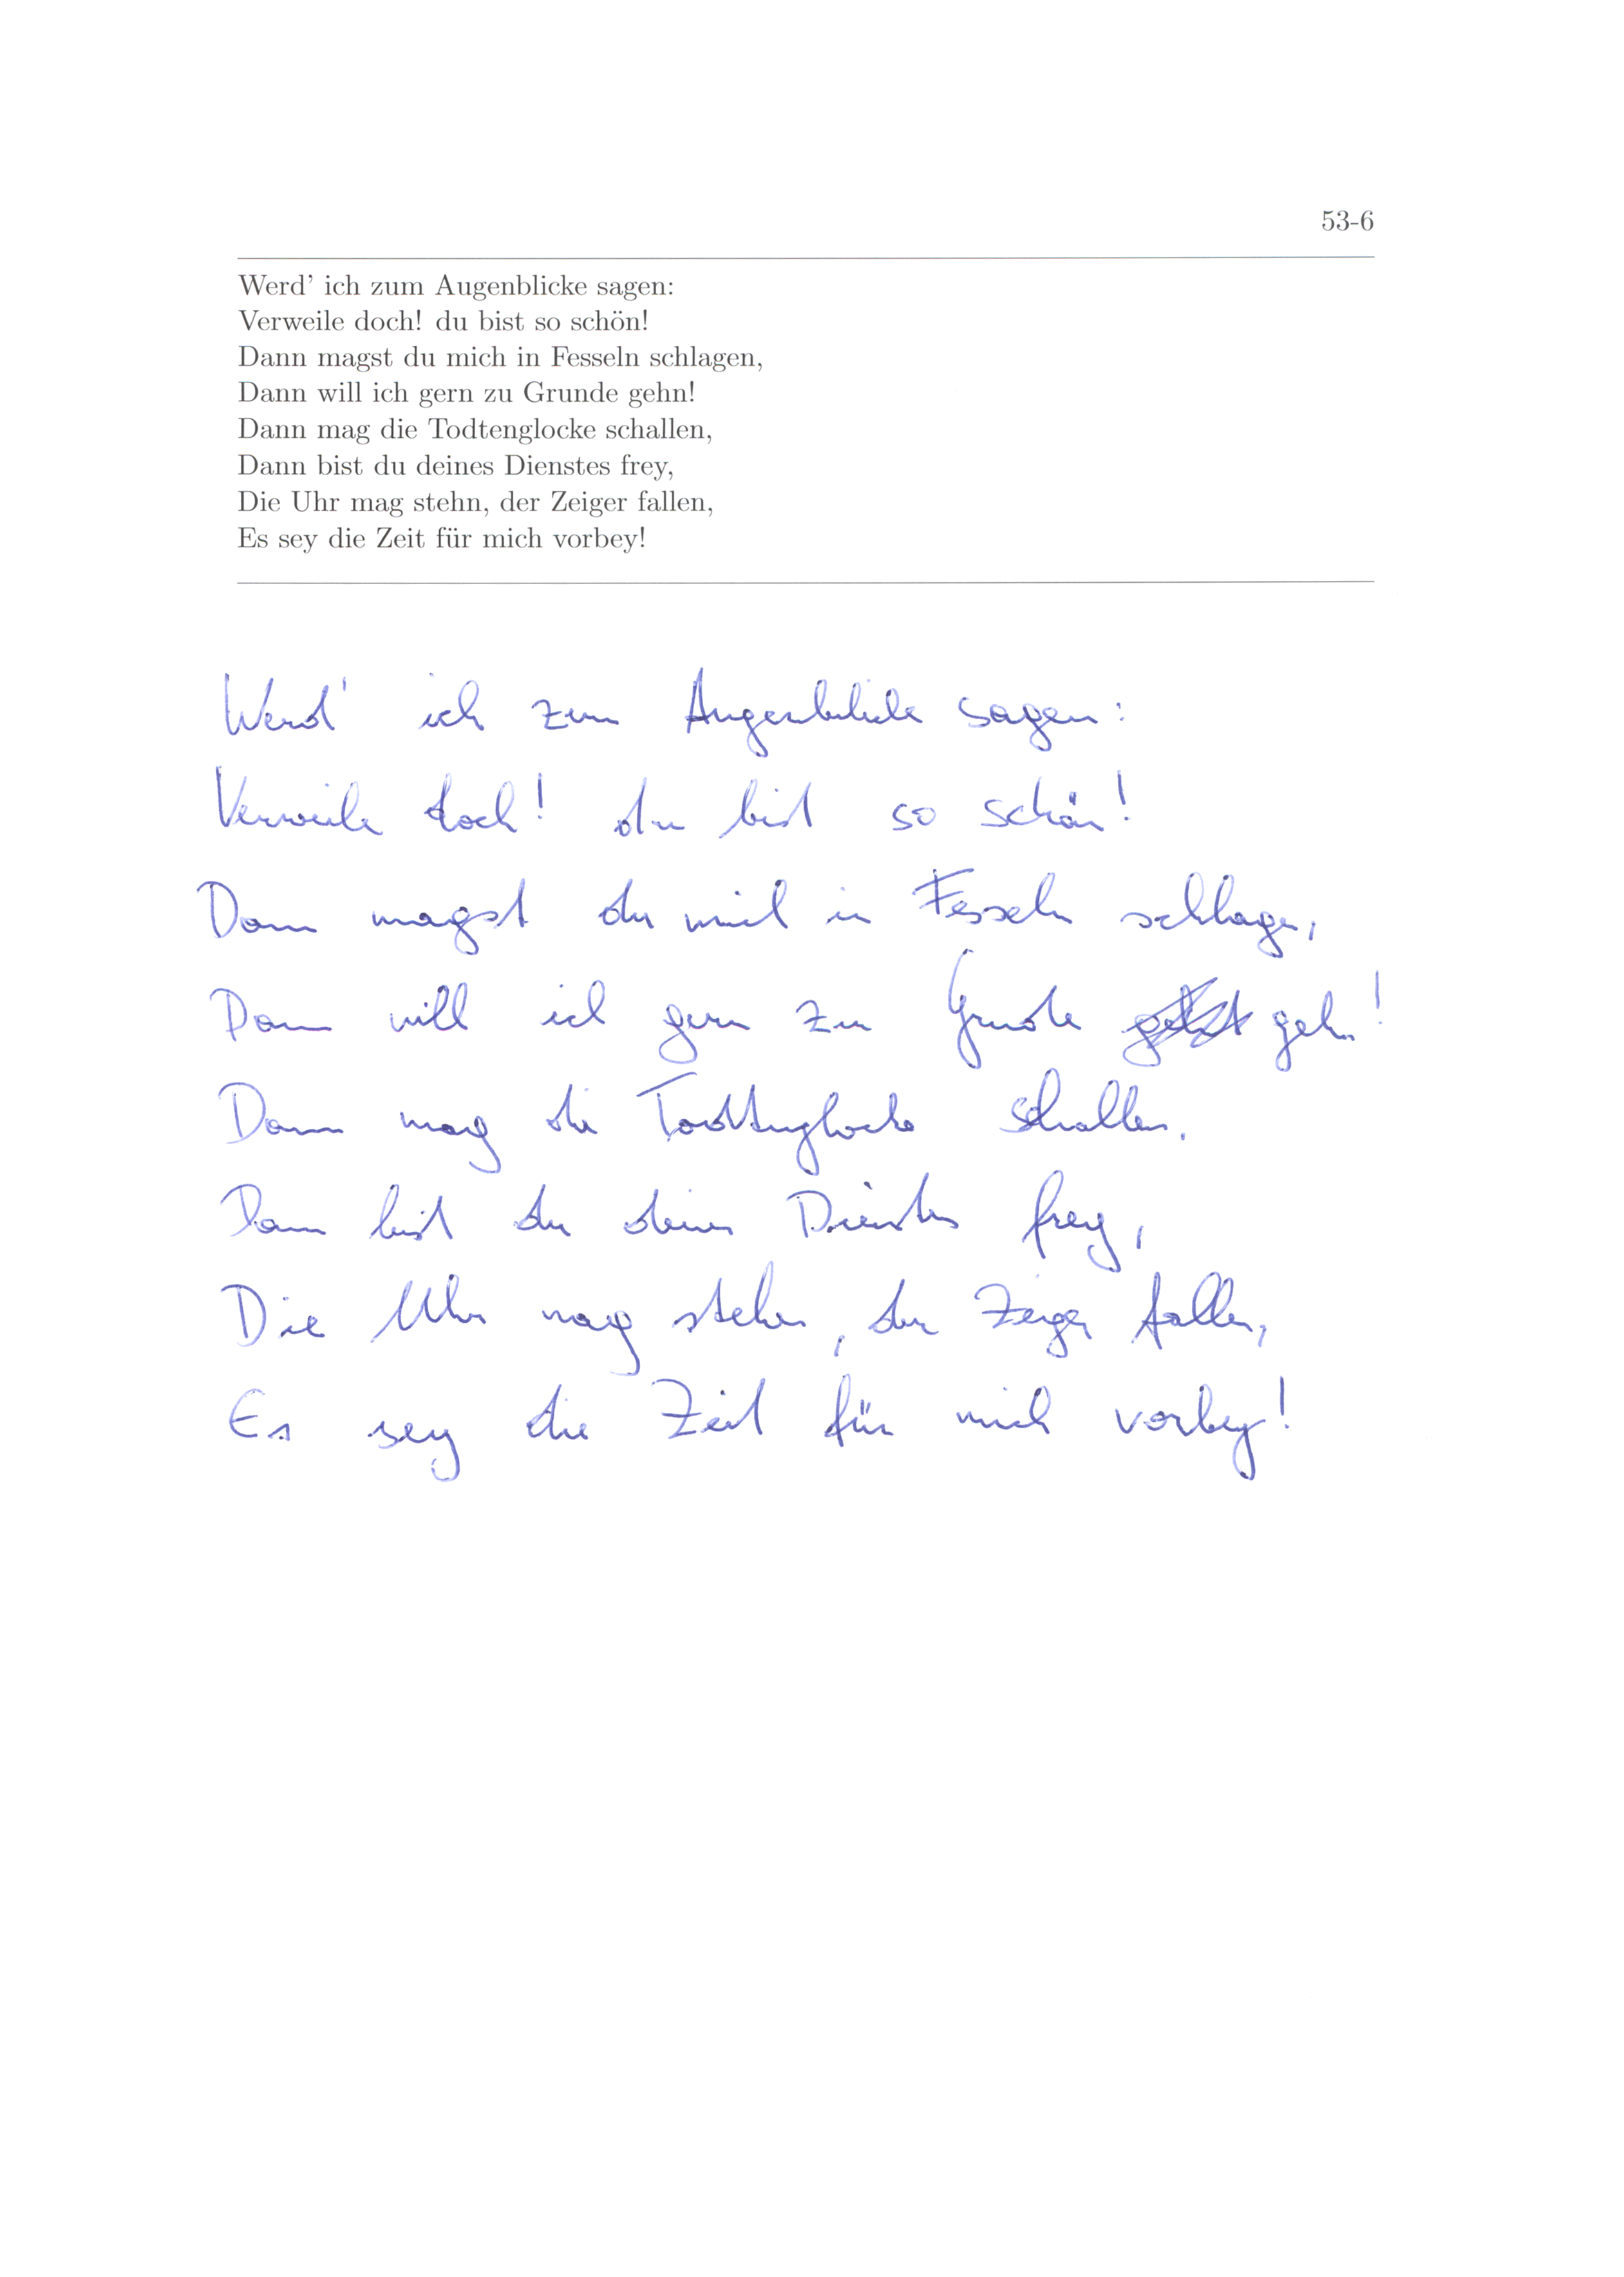 53-6
Werd' ich zum Augenblicke sagen:
Verweile doch! du bist so schön!
Dann magst du mich in Fesseln schlagen,
Dann will ich gern zu Grunde gehn!
Dann mag die Todtenglocke schallen,
Dann bist du deines Dienstes frey,
Die Uhr mag stehn, der Zeiger fallen,
Es sey die Zeit für mich vorbey!
Werd' ich zum Augenblicke sagen:
Verweile doch! du bist so schön!
Dann magst du mich in Fesseln schlagen,
Dann will ich gern zu Grunde gehn!
Dann mag die Todtenglocke schallen.
Dann bist du deines Dienstes frey,
Die Uhr mag stehen, der Zeiger fallen,
Es sey die Zeit für mich vorbey!